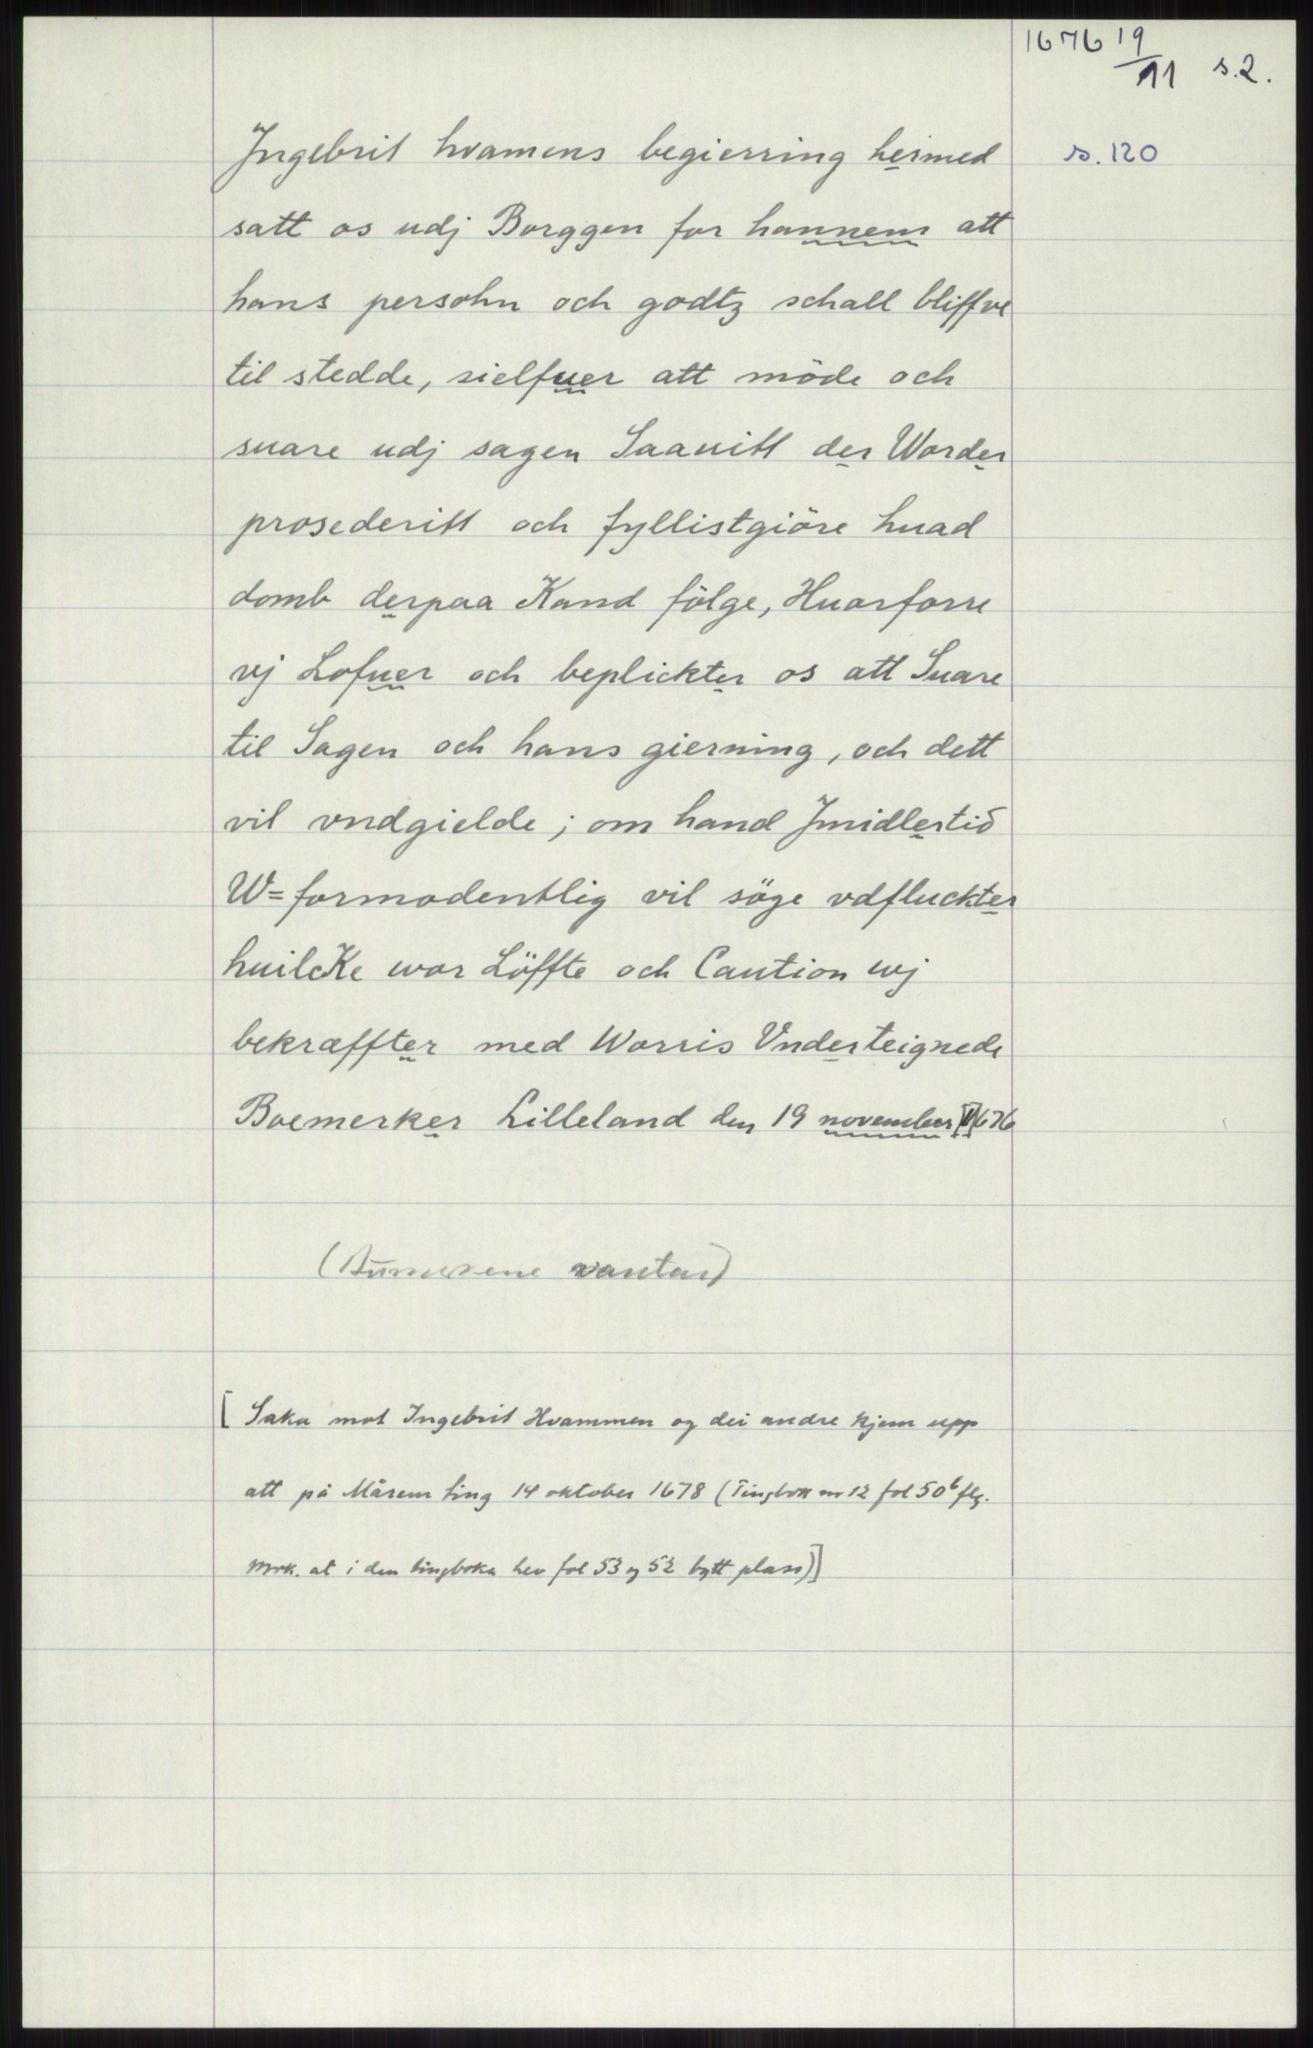 1676 19/11 s.2.
Jngebrit hvamens begierring hermed s.120
satt os udj Borggen for hannem att
hans persohn och godtz schall bliffve
til stedde, sielfuer att möde och
suare udj sagen Saauitt der Worder
prosederitt och fyllistgiöre huad
domb derpaa Kand fölge, Huorforre
vj Lofuer och beplickter os att Suare
til Sagen och hans gierning, och dett
vil vndgielde; om hand Jmidlertid
W=formodentlig vil söge vdfluckter
huilcKe wor Löffte och Caution wj
bekræffter med Worris Vnderteignede
Boemerker Lilleland den 19 november 1676
(Bumerkene vantar)
[Saka mot Ingebrit Hvammen og dei andre kjem upp
att på Mårem ting 14 oktober 1678 (Tingbok nr 12 fol 50b flg.
Mrk. at i den tingboka hev fol 53 og 52 bytt plass)]